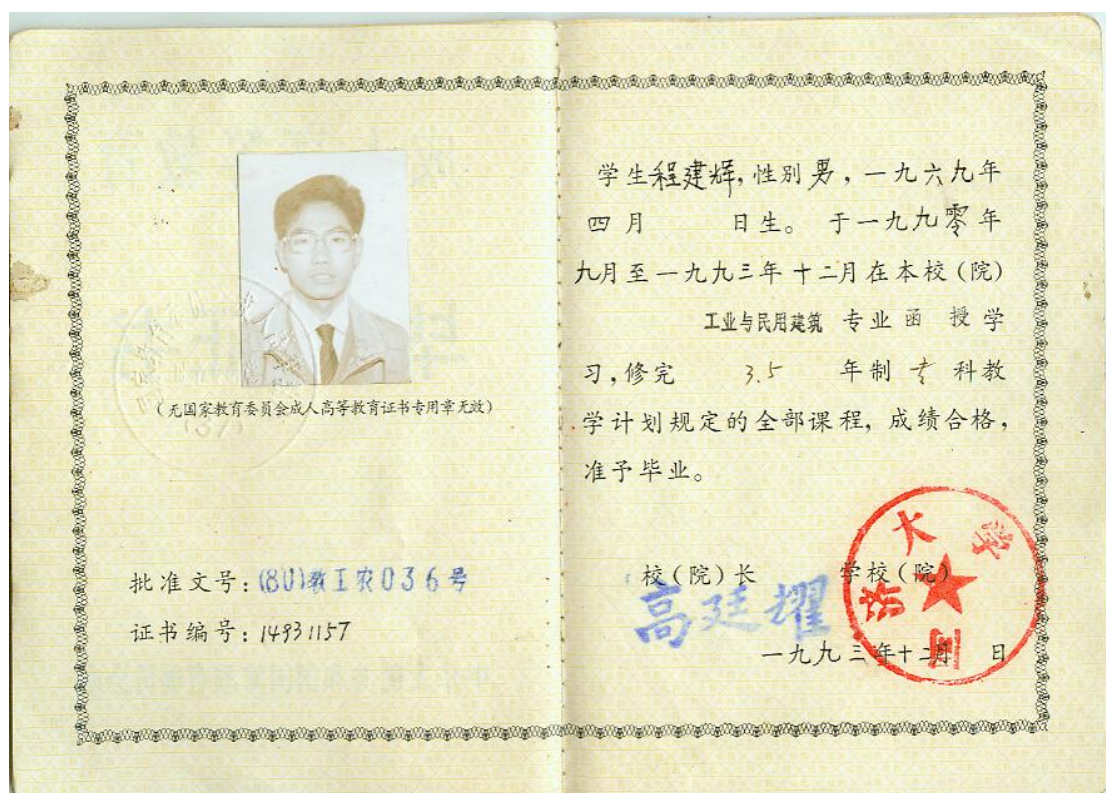 (无国家教育委员会成人高等教育证书专用章无效)
批准文号:(80)教工农036号
证书编号:14931157
学生程建辉,性别男,一九六九年
四月 日生。于一九九零年
九月至一九九三年十二月在本校(院)
工业与民用建筑 专业函 授学
习,修完 3.5 年制 专 科教
学计划规定的全部课程,成绩合格,
准予毕业。
校(院)长 学校(院)
高廷耀
一九九三年十二月 日
同济大学